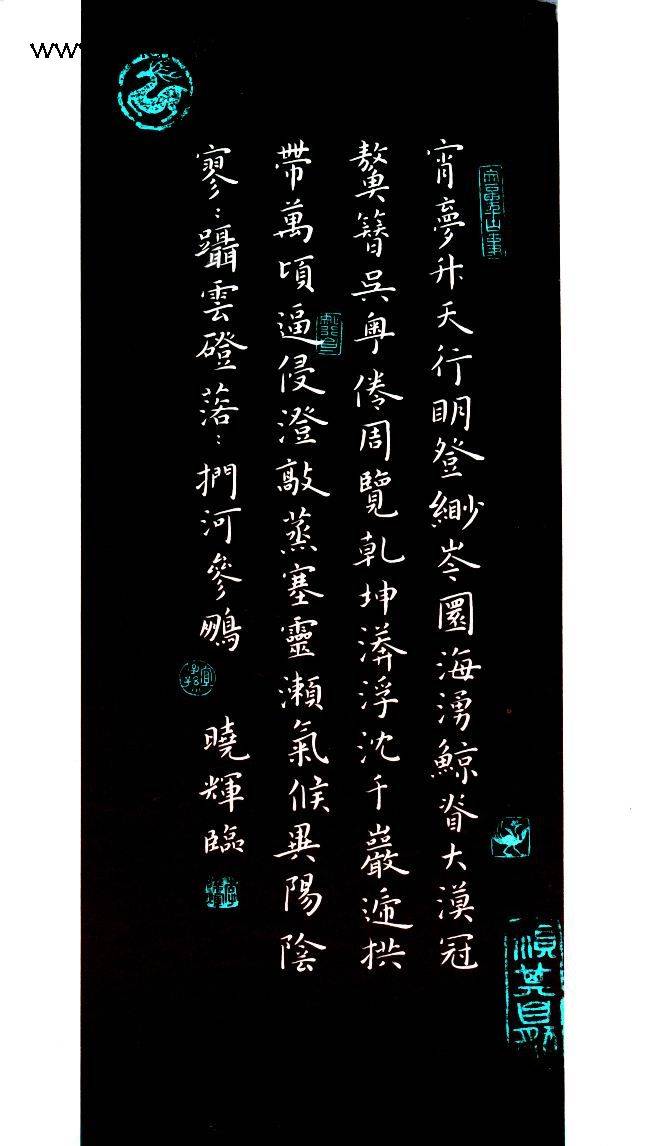 www
宵夢升天行明登緲岑圜海湧鯨脊大漠冠
簪吳粵倦周覽乾坤漭浮沈千巖遞拱
帶萬頃逼侵澄敲蒸塞靈瀨氣候異陽陰
寥〻躡雲磴落〻捫河參鵬
曉輝臨